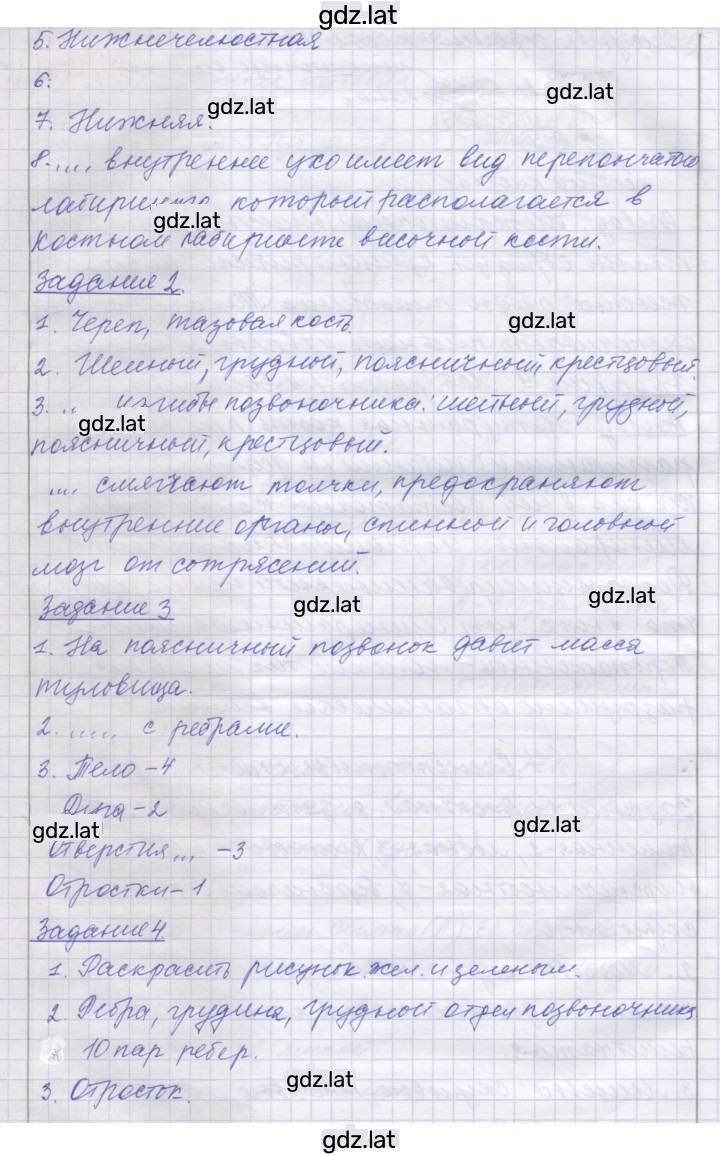 gdz.lat
5. Нижнечелюстная
6.
gdz.lat
gdz.lat
7. Нижняя.
8. .... внутреннее ухо имеет вид перепончатого
который располагается в
gdz.lat
костном лабиринте височной кости.
Задание 2.
1. Череп, тазовая кость
gdz.lat
2. Шейный, грудной, поясничный, крестцовый.
3. .. изгибы позвоночника: шейный, грудной,
gdz.lat
поясничный, крестцовый.
.... смягчают толчки, предохраняют
внутренние органы, спинной и головной
мозг от сотрясений.
gdz.lat
Задание 3
gdz.lat
1. На поясничный позвонок давит масса
туловища.
2. ..... с ребрами.
3. Тело – 4
Дуга – 2
gdz.lat
gdz.lat
Отверстия ... – 3
Отростки – 1
Задание 4
1. Раскрасить рисунок жел. и зеленым.
2. Ребра, грудина, грудной отдел позвоночника
10 пар ребер.
3. Отросток.
gdz.lat
gdz.lat